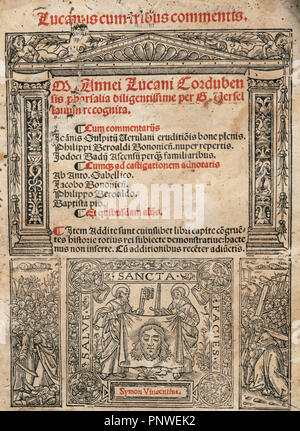 Lucanus cum tribus commentis.
M. Annei Lucani Corduben
sis pharsalia diligentissime per G. Versel
lanum recognita.
Cum commentariis
Joānis Sulpitii Verulani eruditiōis bone plenis.
Philippi Beroaldi Bononiēn. nuper repertis.
Jodoci Badii Ascensii perq̄. familiaribus.
Cumq̄ ad castigationem adnotatis
Ab Anto. Sabellico.
Jacobo Bononiēn.
Philippo Beroaldo.
Baptista pio.
Et quibusdam aliis.
Item Addite sunt cuiuslibet libri capite cōgruē
tes historie totius rei subiecte demonstratiue: hacte
nus non inserte. Cū additionibus recēter adiūctis.
SANCTA
SALVE
FACIES
Symon Vincentius.
alamy
Image ID: PNWEK2
www.alamy.com